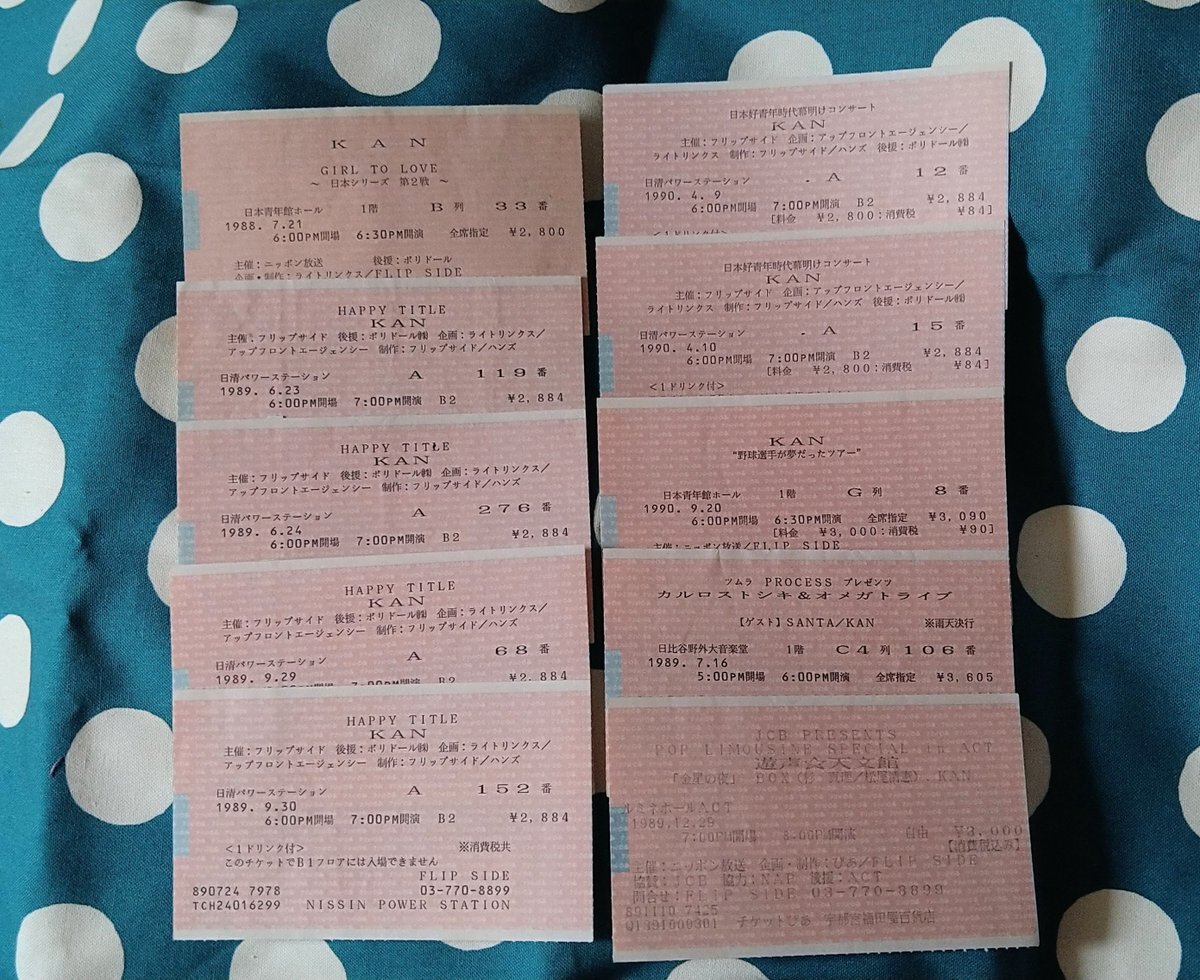 KAN
GIRL TO LOVE
～ 日本シリーズ 第2戦 ～
日本青年館ホール 1階 B 列 33 番
1988. 7.21
6:00PM開場 6:30PM開演 全席指定 ¥2,800
主催：ニッポン放送 後援：ポリドール
企画・制作：ライトリンクス/FLIP SIDE
HAPPY TITLE
KAN
主催：フリップサイド 後援：ポリドール㈱ 企画：ライトリンクス/
アップフロントエージェンシー 制作：フリップサイド/ハンズ
日清パワーステーション A 119 番
1989. 6.23
6:00PM開場 7:00PM開演 B2 ¥2,884
HAPPY TITLE
KAN
主催：フリップサイド 後援：ポリドール㈱ 企画：ライトリンクス/
アップフロントエージェンシー 制作：フリップサイド/ハンズ
日清パワーステーション A 276 番
1989. 6.24
6:00PM開場 7:00PM開演 B2 ¥2,884
HAPPY TITLE
KAN
主催：フリップサイド 後援：ポリドール㈱ 企画：ライトリンクス/
アップフロントエージェンシー 制作：フリップサイド/ハンズ
日清パワーステーション A 68 番
1989. 9.29
6:00PM開場 7:00PM開演 B2 ¥2,884
HAPPY TITLE
KAN
主催：フリップサイド 後援：ポリドール㈱ 企画：ライトリンクス/
アップフロントエージェンシー 制作：フリップサイド/ハンズ
日清パワーステーション A 152 番
1989. 9.30
6:00PM開場 7:00PM開演 B2 ¥2,884
<1ドリンク付> ※消費税共
このチケットでB1フロアには入場できません
FLIP SIDE
890724 7978 03-770-8899
TCH24016299 NISSIN POWER STATION
日本好青年時代幕明けコンサート
KAN
主催：フリップサイド 企画：アップフロントエージェンシー/
ライトリンクス 制作：フリップサイド/ハンズ 後援：ポリドール㈱
日清パワーステーション . A 12 番
1990. 4. 9
6:00PM開場 7:00PM開演 B2 ¥2,884
[料金 ¥2,800：消費税 ¥84]
<1ドリンク付>
日本好青年時代幕明けコンサート
KAN
主催：フリップサイド 企画：アップフロントエージェンシー/
ライトリンクス 制作：フリップサイド/ハンズ 後援：ポリドール㈱
日清パワーステーション . A 15 番
1990. 4.10
6:00PM開場 7:00PM開演 B2 ¥2,884
[料金 ¥2,800：消費税 ¥84]
<1ドリンク付>
KAN
"野球選手が夢だったツアー"
日本青年館ホール 1階 G 列 8 番
1990. 9.20
6:00PM開場 6:30PM開演 全席指定 ¥3,090
[料金 ¥3,000：消費税 ¥90]
主催：ニッポン放送/FLIP SIDE
ツムラ PROCESS プレゼンツ
カルロストシキ＆オメガトライブ
【ゲスト】SANTA/KAN ※雨天決行
日比谷野外大音楽堂 1階 C4 列 106 番
1989. 7.16
5:00PM開場 6:00PM開演 全席指定 ¥3,605
JCB PRESENTS
POP LIMOUSINE SPECIAL in ACT
遊声会天文館
「金星の夜」 BOX（杉 真理/松尾清憲）.KAN
ルミネホールACT
1989.12.29
7:00PM開場 8:00PM開演 自由 ¥3,000
【消費税込み】
主催：ニッポン放送 企画・制作：ぴあ/FLIP SIDE
協賛：JCB 協力：NAP 後援：ACT
問合せ：FLIP SIDE 03-770-8899
891110 7425
Q1391000301 チケットぴあ 宇都宮福田屋百貨店